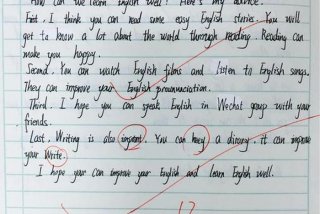 How can we learn English well? Here's my advice.
First. I think you can read some easy English stories. You will
get to know a lot about the world through reading. Reading can
make you happy.
Second. You can watch English films and listen to English songs.
They can improve your English pronunciation.
Third. I hope you can speak English in Wechat group with your
friends.
Last. Writing is also impront. You can keey a dirary. it can improve
your Write.
I hope your can improve your English and learn English well.